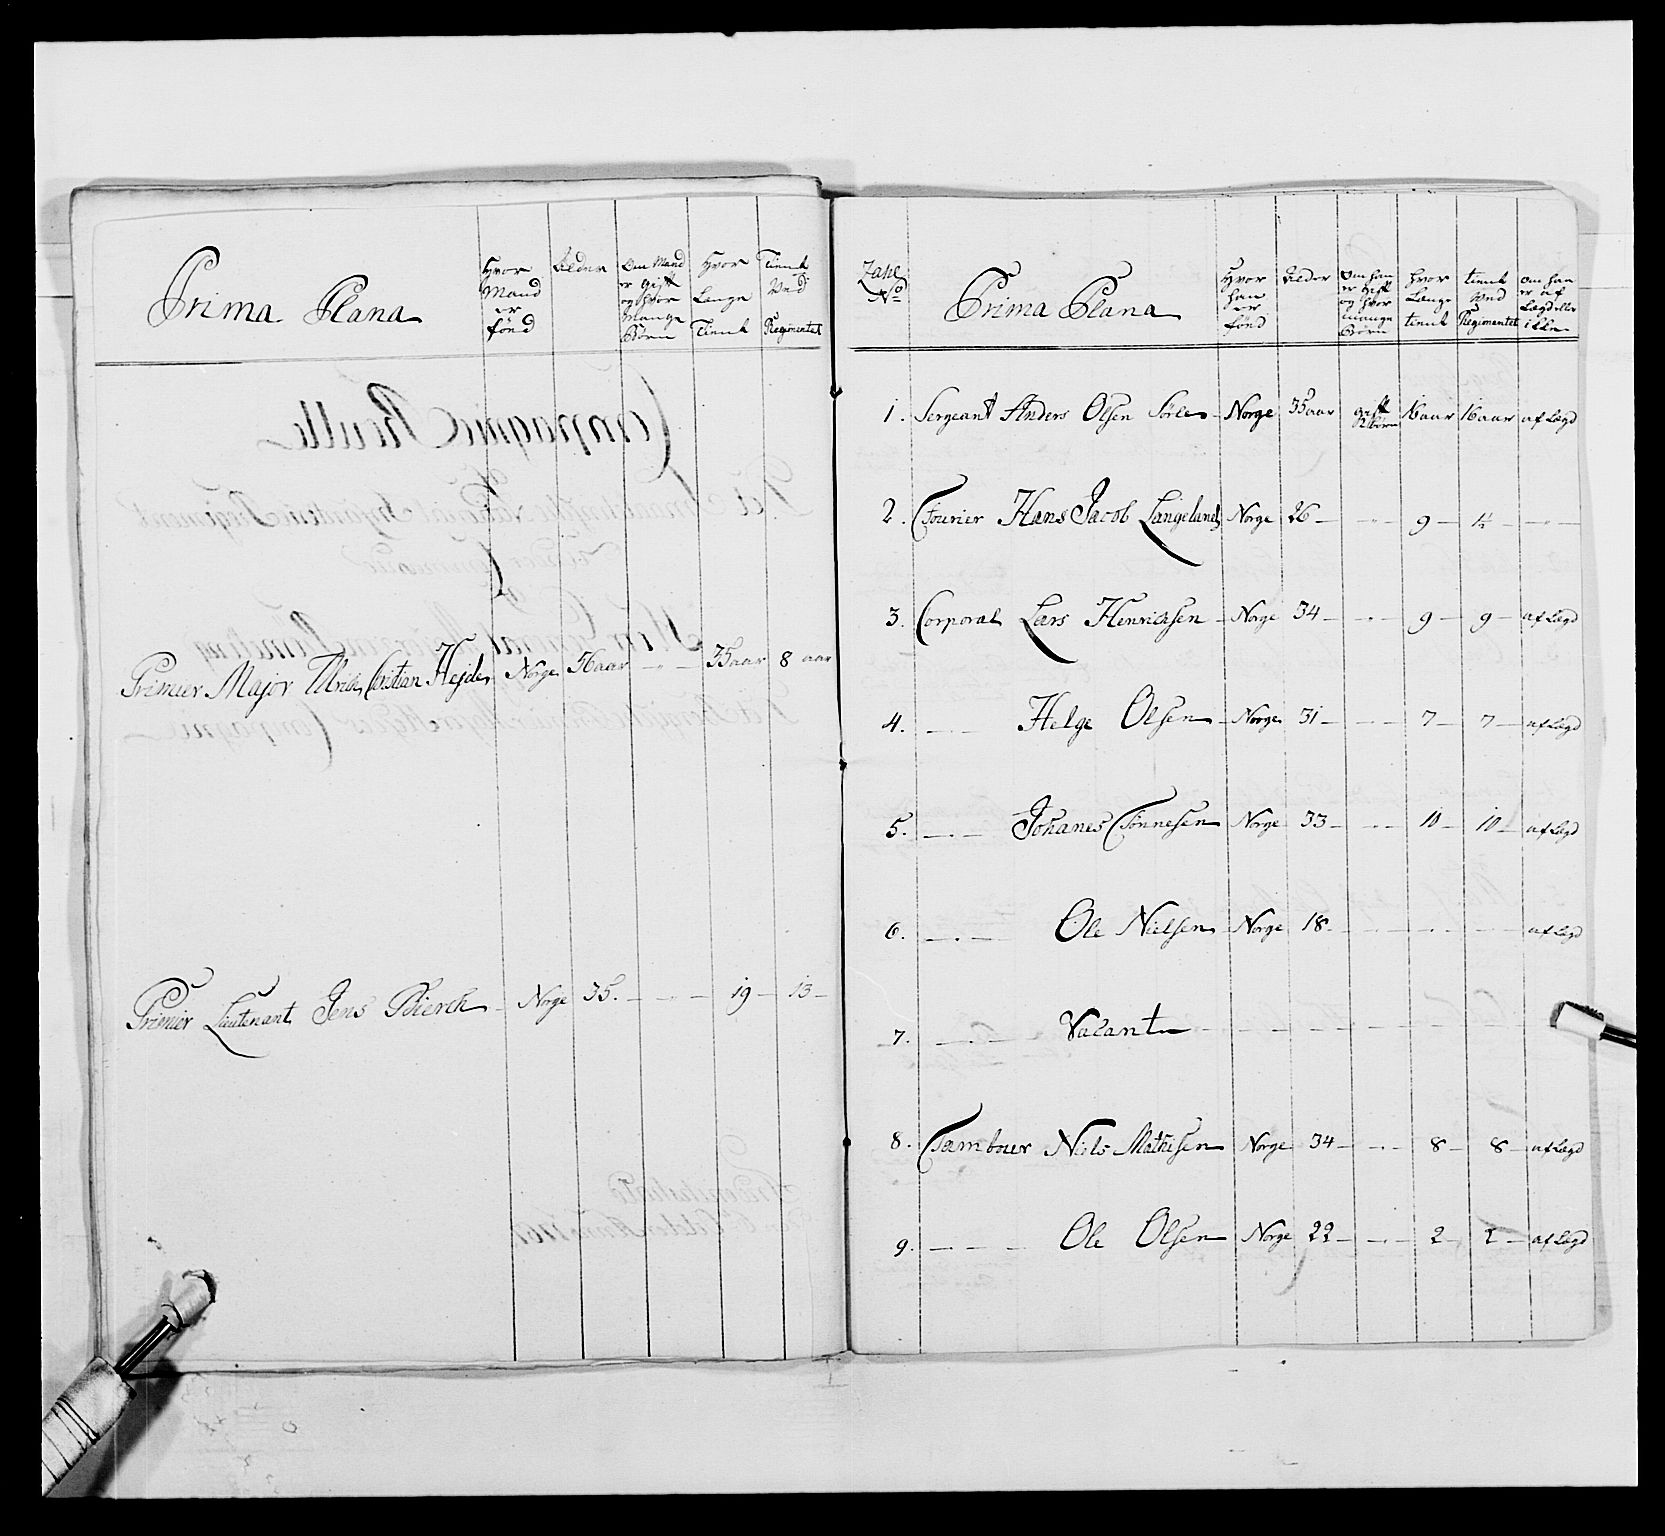 Prima Plana
Hvor Mand er fönd
Alder
Om Mand er gift og hvor Mange Börn
Hvor Lange Tient
Tient Ved Regimentet
Primier Major Ulrich Cristian Hejde Norge 56 aar — " — 35 aar 8 aar
Primier Lieutenant Jens Bierch — Norge 35. — " — 19 — 13 —
Prima Plana
No
Hvor han er fönd
Alder
Om han er Gift og hvor mange Börn
hvor Lange tient
tient Ved Regimentet
Om han er af Lægd eller ikke
1. Sergeant Anders Olsen Sörle — Norge 35 aar gift 16 aar 16 aar af Lægd
2. Fourier Hans Jacob Langeland Norge 26 — " — 9 — 1½ — " —
3. Corporal Lars Henrichsen — Norge 34 — " — 9 — 9 — af Lægd
4. — " — Helge Olsen — Norge 31 — " — 7 — 7 — af Lægd
5. — " — Johanes Tönnesen Norge 33 — " — 10 — 10 — af Lægd
6. — " — Ole Nielsen Norge 18 — af Lægd
7. — " — Vacant
8. Tambour Niels Mathisen Norge 34 — " — 8 — 8 — af Lægd
9. — " — Ole Olsen Norge 22 — " — 2 — 2 — af Lægd